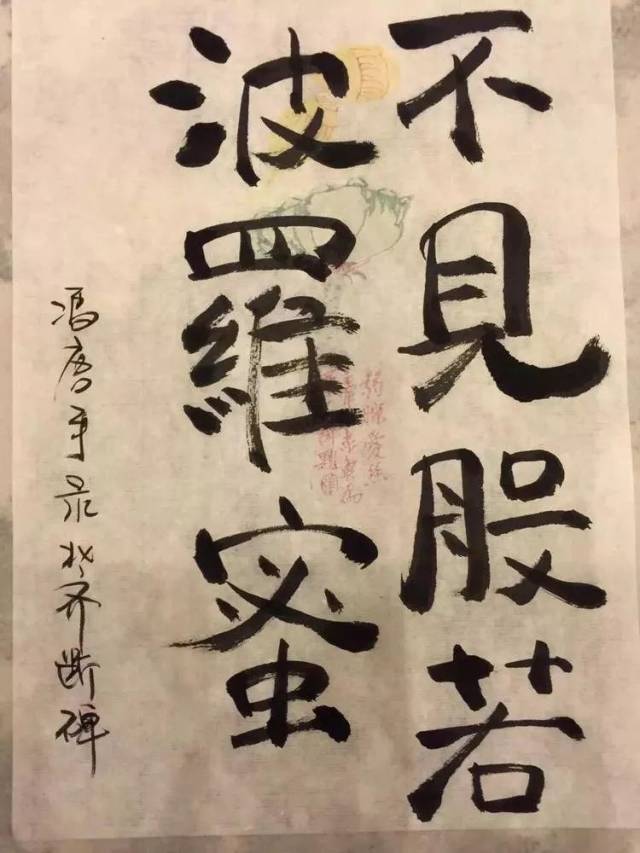 不見股若
波羅蜜
冯唐手录北齐断碑